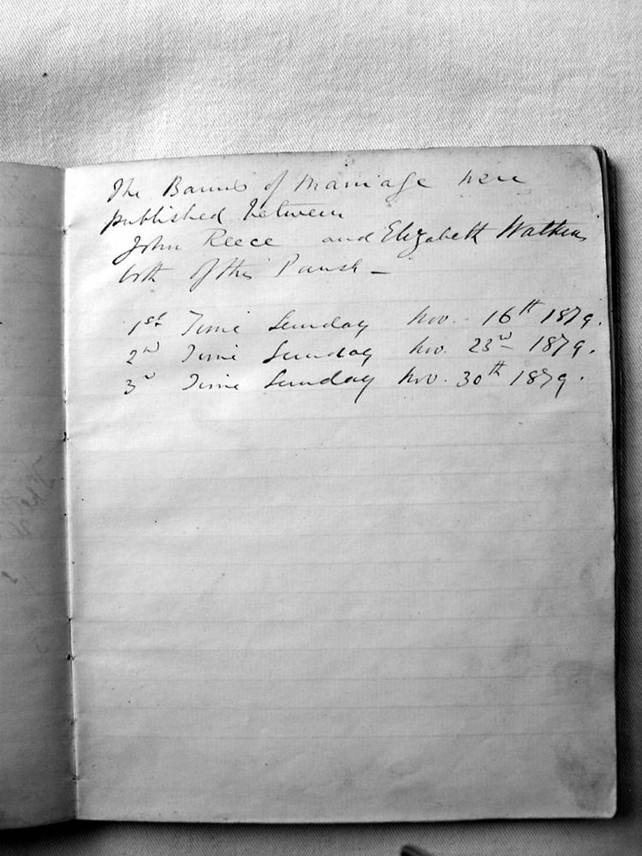 The Banns of Marriage were
published between
John Reece and Elizabeth Watkins
both of this Parish –
1st Time Sunday Nov. 16th 1879.
2nd Time Sunday Nov. 23rd 1879.
3rd Time Sunday Nov. 30th 1879.